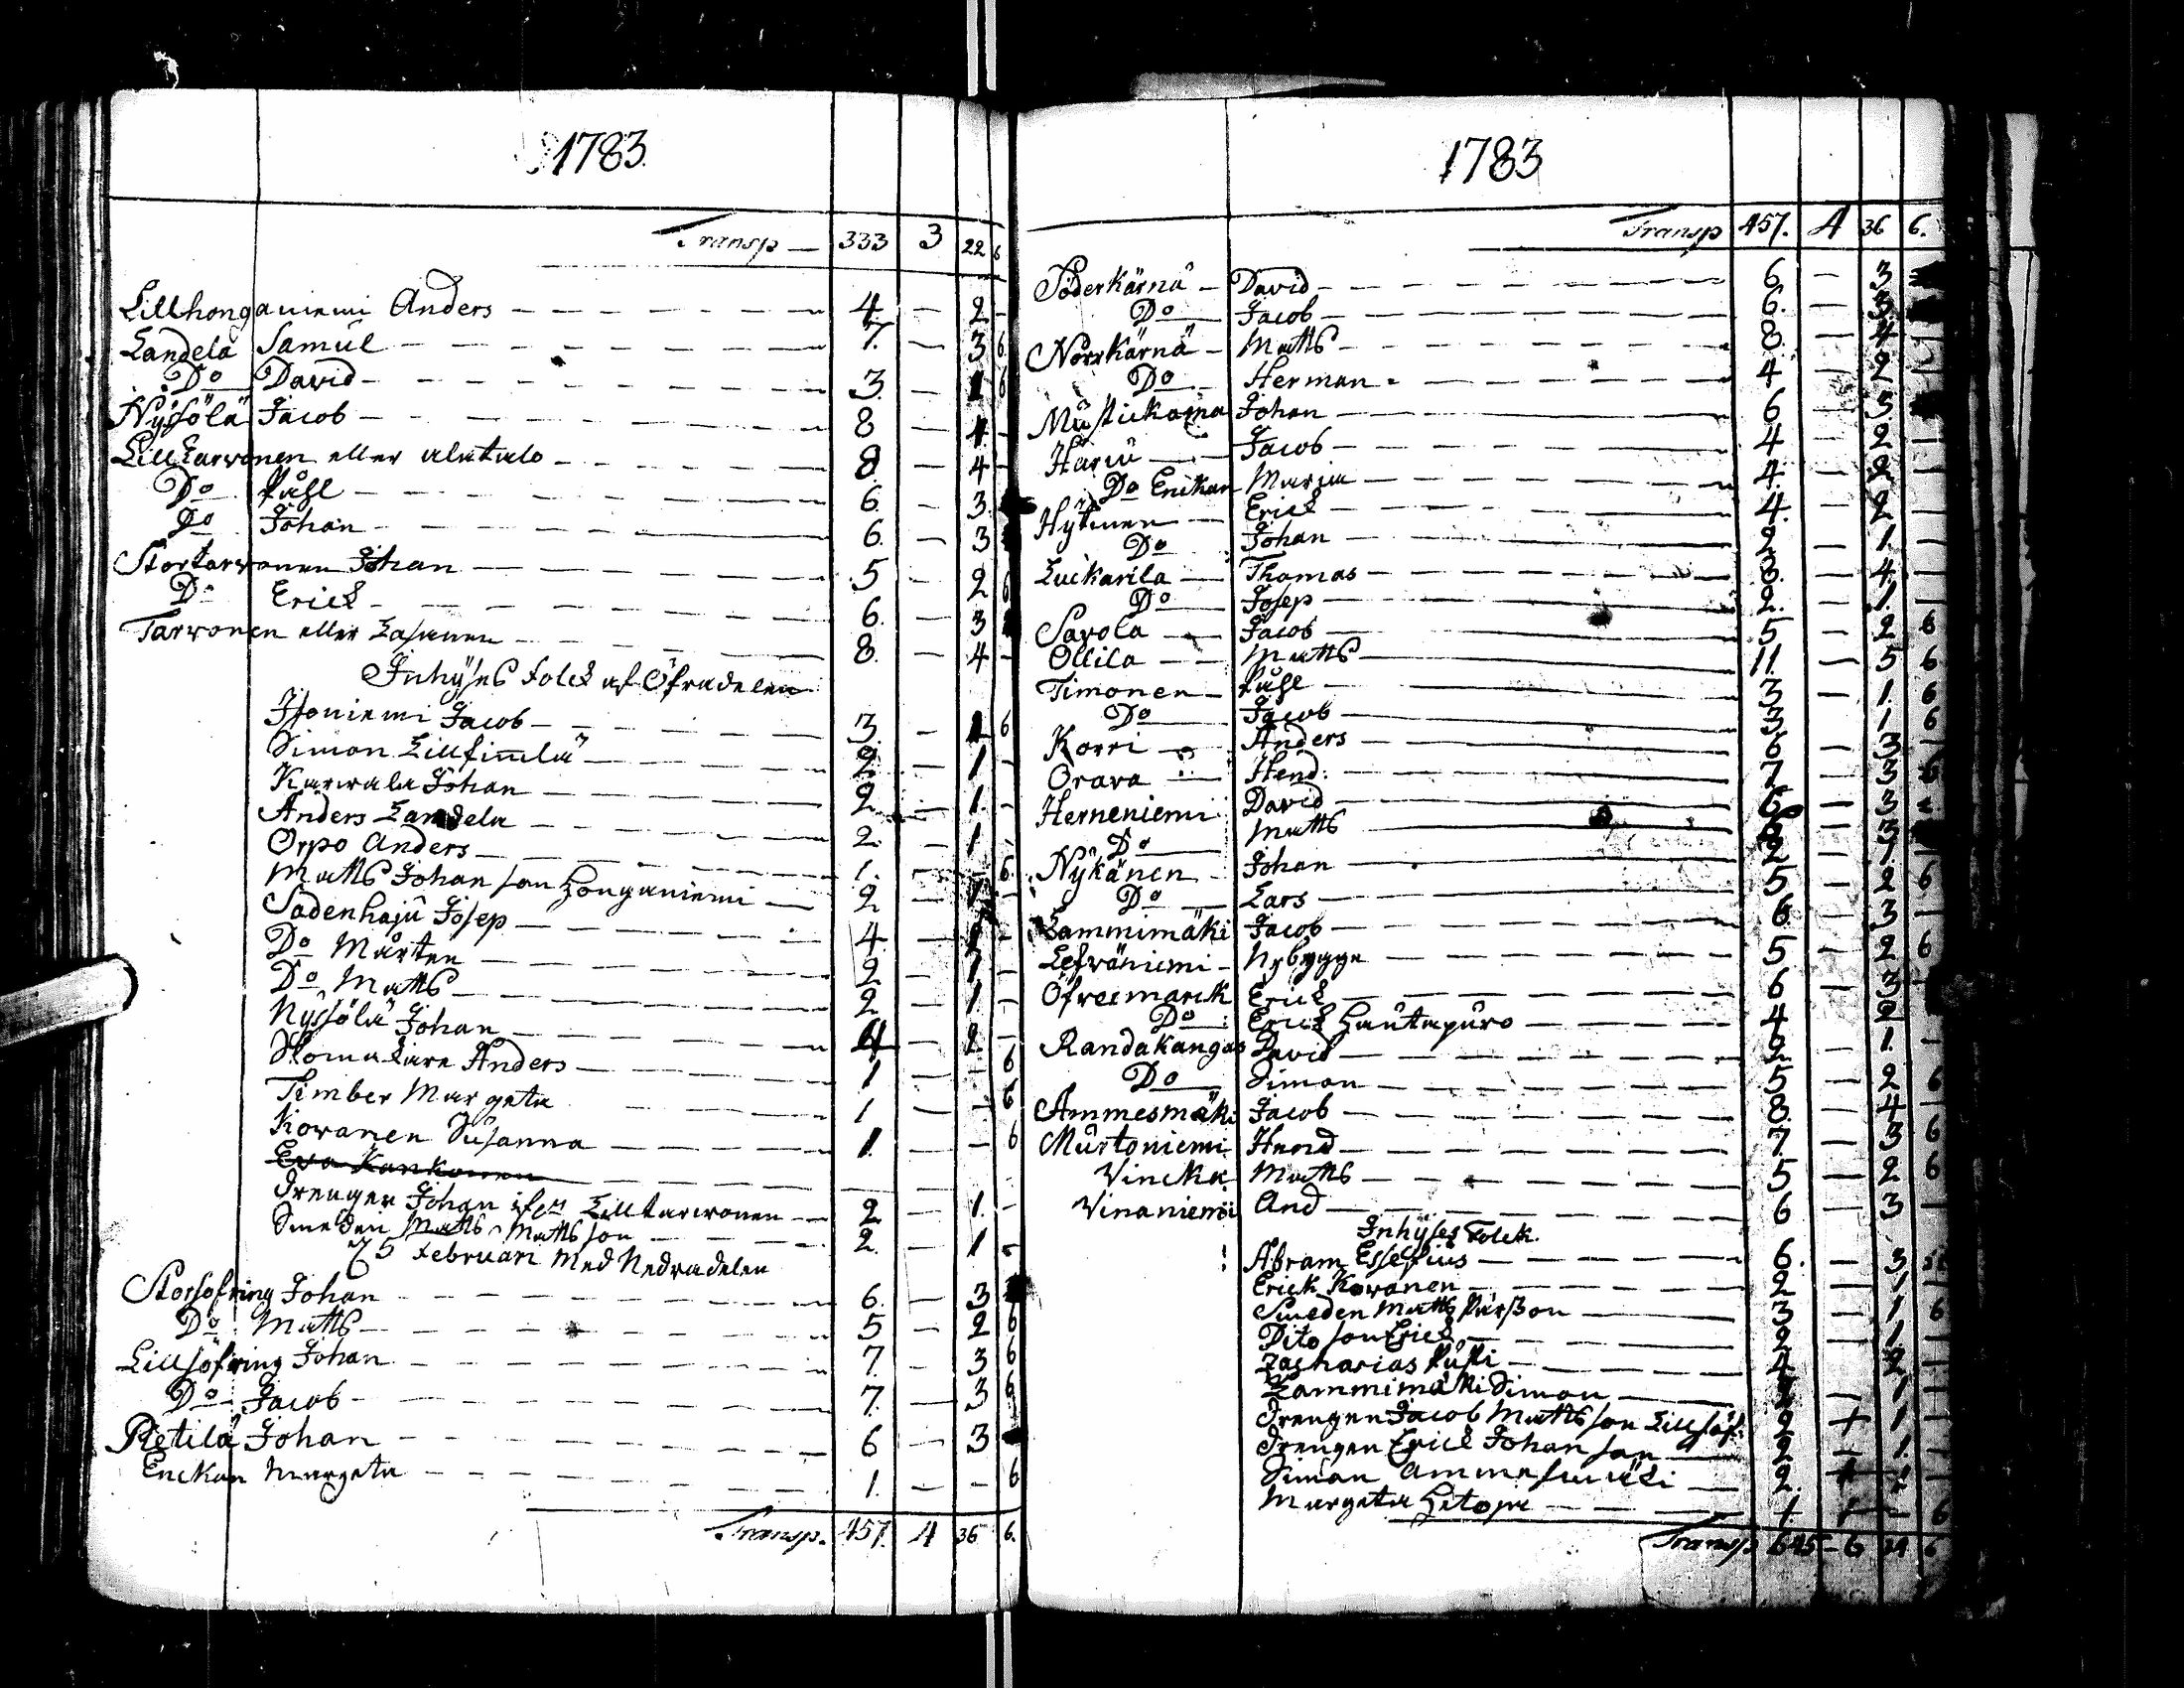 1783.
Transp — 333 3 22 6
Lillhonganiemi Anders — 4 — 2 —
Landela Samuel — 7. — 3 6
Do David — 3. — 1 6
Nyssölä Jacob — 8 — 4 —
Lilltarvonen eller alatalo — 8 — 4 —
Do Påhl — 6. — 3.
Do Johan — 6. — 3
Stortarvonen Johan — 5 — 2 6
Do Erick — 6. — 3
Tarvonen eller Lasanen — 8. — 4 —
Inhyses folck af Öfradelen
Isoniemi Jacob — 3. — 1 6
Simon — 2. — 1 —
Karvala Johan — 2 — 1. —
Anders Landela — 2. — 1 —
Orpo Anders — 1. — — 6
Matts Johan son Honganiemi — 2 — 1 —
Sadenhaju Josep — 4 — 2 —
Do Mårten — 2 — 1 —
Do Matts — 2 — 1. —
Nyssölä Johan — 4 — 2 —
Anders — 1 — — 6
Timber Margeta — 1 — — 6
Kovanen Susanna — 1. — — 6
Eva Kankonen —
Drengen Johan Lilltarvonen — 2 — 1. —
Smeden Matts Mattsson — 2. — 1 —
5 Februari med Nedradelen
Storsofring Johan — 6. — 3
Do Matts — 5 — 2 6
Lillsöfring Johan — 7. — 3 6
Do Jacob — 7. — 3 6
Pietilä Johan — 6 — 3
Enckan Margeta — 1. — — 6
Transp. 457. 4 36 6.
1783
Transp 457. 4 36 6.
Söderkärnä — David — 6 — 3
Do Jacob — 6. — 3.
Norrkärnä — Matts — 8 — 4
Do Herman — 4 — 2 —
Johan — 6 — 3
Harju — Jacob — 4 — 2 —
Do Enckan Maria — 4. — 2 —
Hytinen — Erick — 4. — 2 —
Do Johan — 2 — 1. —
Luckarila — Thomas — 8. — 4. —
Do Josep — 2. — 1. —
Savola — Jacob — 5 — 2 6
Ollila — Matts — 11. — 5 6
Timonen — Påhl — 3 — 1. 6
Do Jacob — 3 — 1 6
Korri — Anders — 6 — 3 —
Orava — Hend: — 7 — 3 6
Herneniemi David — 6 — 3
Do Matts —
Nykänen Johan — 2 — 1
Do Lars — 5 — 2 6
Lammimäki Jacob — 6 — 3 —
Lefväniemi — Nybygge — 5 — 2 6
Öfvermarck Erick — 6 — 3 —
Do Erick Hautapuro — 4 — 2
Randakangas David — 2 — 1. —
Do Simon — 5 — 2 6
Ammesmäki Jacob — 8. — 4 —
Murtoniemi Hend — 7. — 3 6
Vincka Matts — 5 — 2 6
Vinaniemi And — 6 — 3 —
Inhyses Folck.
Abram Esselius — 6. — 3
Erick Kovanen — 2 — 1 —
Smeden Matts Pärsson — 3 — 1 6
Dito son Erick — 2 — 1. —
Zacharias — 4 — 2 —
Lammimäki Simon — 2 — 1 —
Drengen Jacob Matts son Lillsöf: 2 — 1 —
Drengen Erick Johan son — 2 — 1. —
Simon Ammesmäki — 2. — 1 —
Margeta — 1 — — 6
Transp 645 — 6 24 6